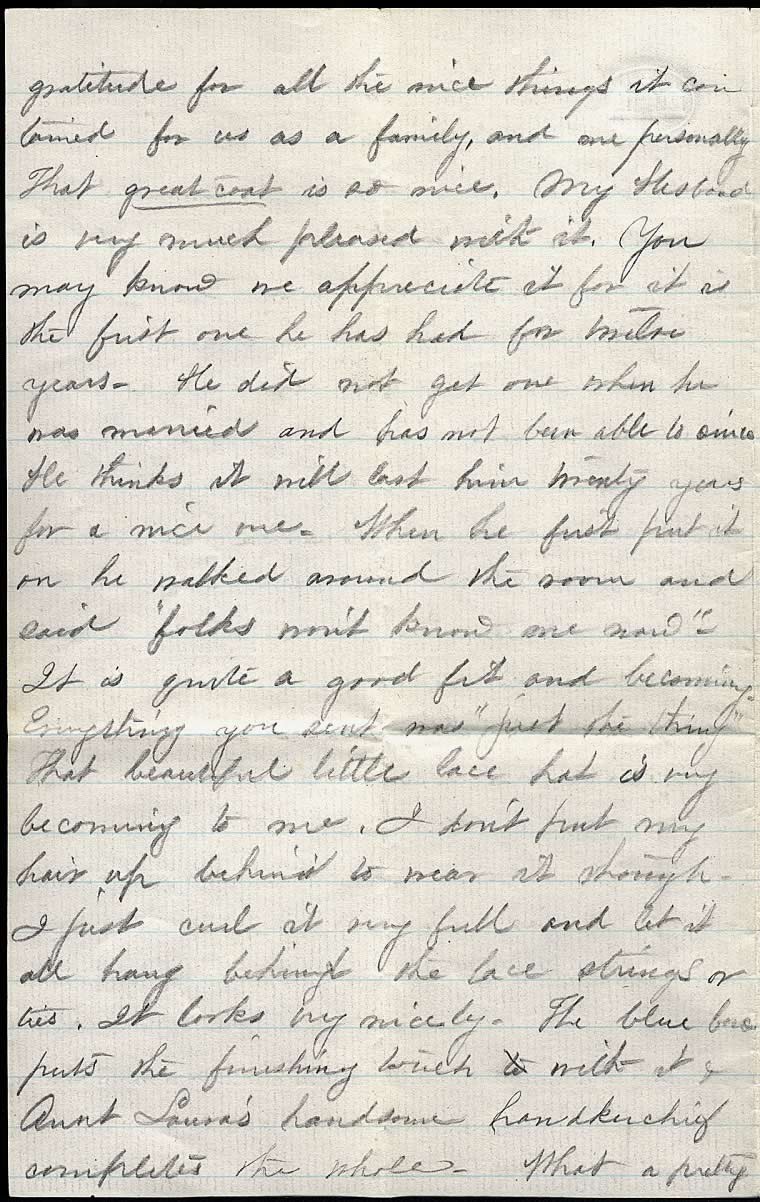 gratitude for all the nice things it con
tained for us as a family, and me personally
That great coat is so nice. My Husband
is very much pleased with it. You
may know we appreciate it for it is
the first one he has had for twelve
years- He did not get one when he
was married and has not been able to since
He thinks it will last him twenty years
for a nice one- When he first put it
on he walked around the room and
said "folks won't know me now"-
It is quite a good fit and becoming-
Everything you sent was "just the thing"
That beautiful little lace hat is very
becoming to me. I don't put my
hair up behind to wear it though-
I just curl it very full and let it
all hang behind the lace strings or
ties. It looks very nicely- The blue
puts the finishing touch to with it &
Aunt Laura's handsome handkerchief
completes the whole- What a pretty